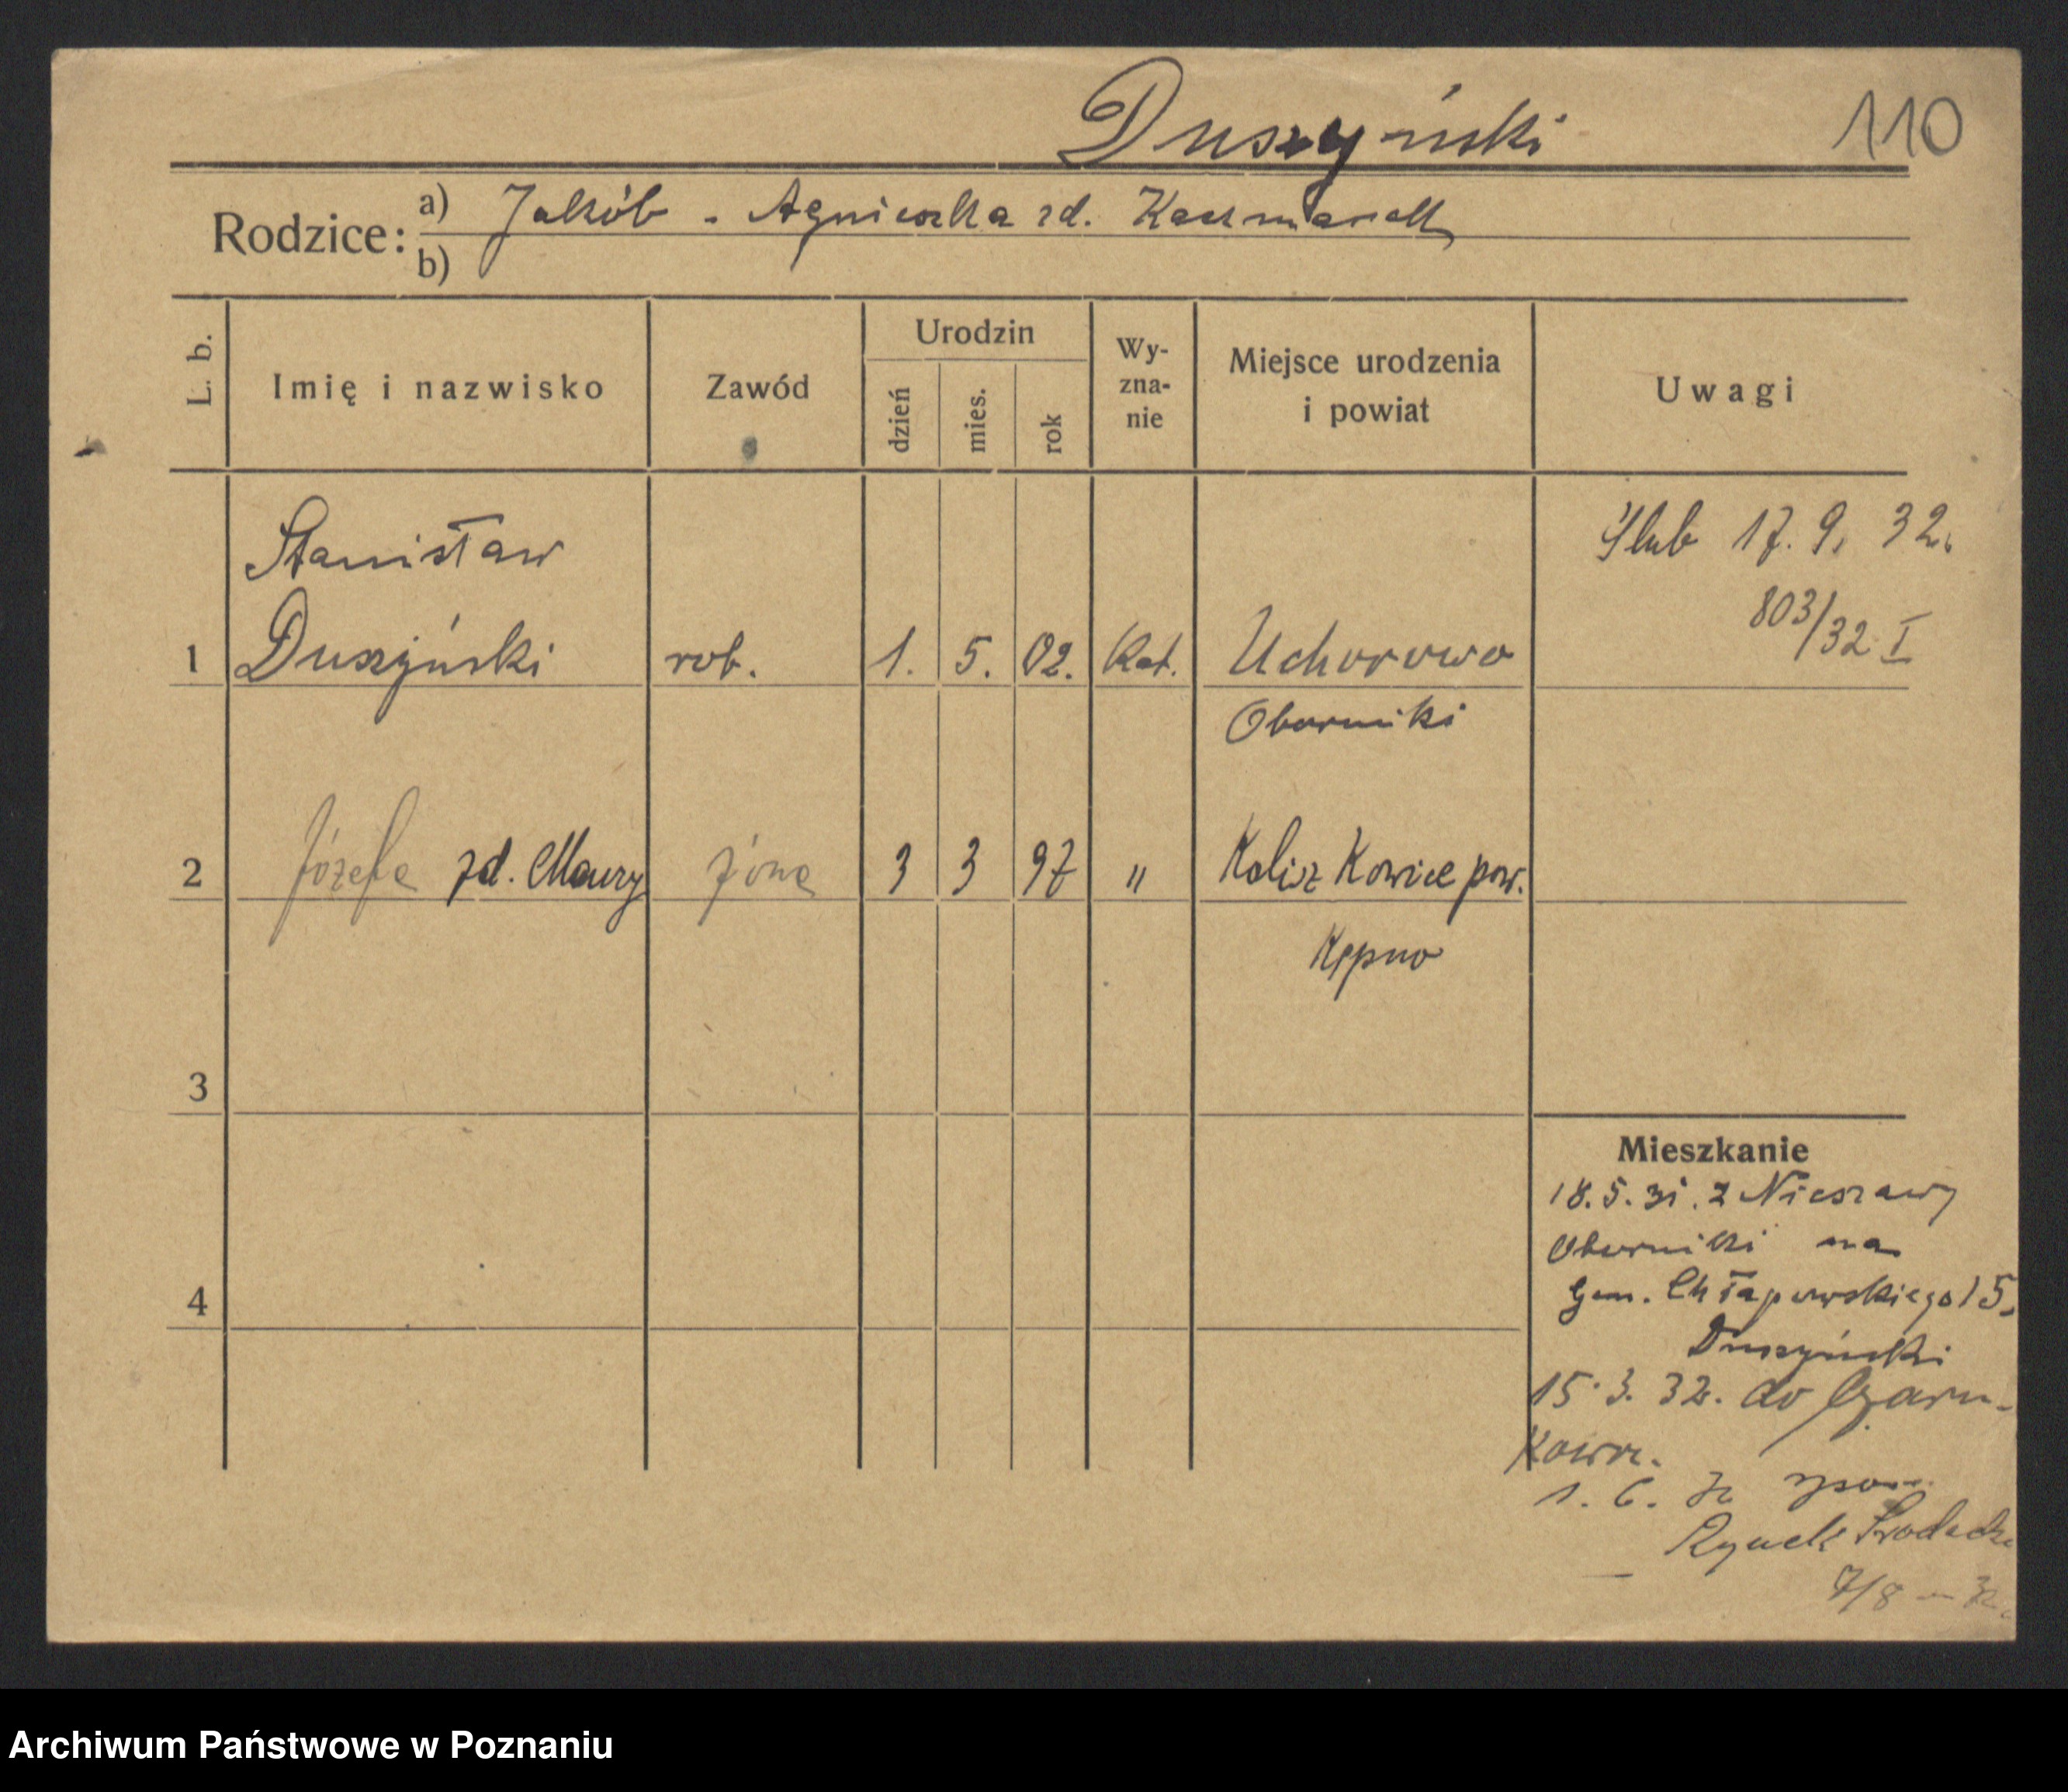 Duszyński
110
Rodzice: a) Jakób - Agnieszka zd. Kaczmarek
b)
L. b.
Imię i nazwisko
Zawód
Urodzin
dzień
mies.
rok
Wy-
zna-
nie
Miejsce urodzenia
i powiat
Uwagi
Stanisław
1 Duszyński rob. 1. 5. 02. Kat. Uchorowo
Oborniki
Ślub 17. 9. 32.
803/32 I
2 Józefa zd. Maury żona 3 3 97 " Kalisz Kowice pow.
Kępno
3
4
Mieszkanie
18. 5. 31. z Nieszawy
Oborniki na
Gen. Chłapowskiego 15.
Duszyński
15. 3. 32. do Czarn-
kowa.
1. 6. 32
Rynek Śródecki
7/8 - 32.
Archiwum Państwowe w Poznaniu